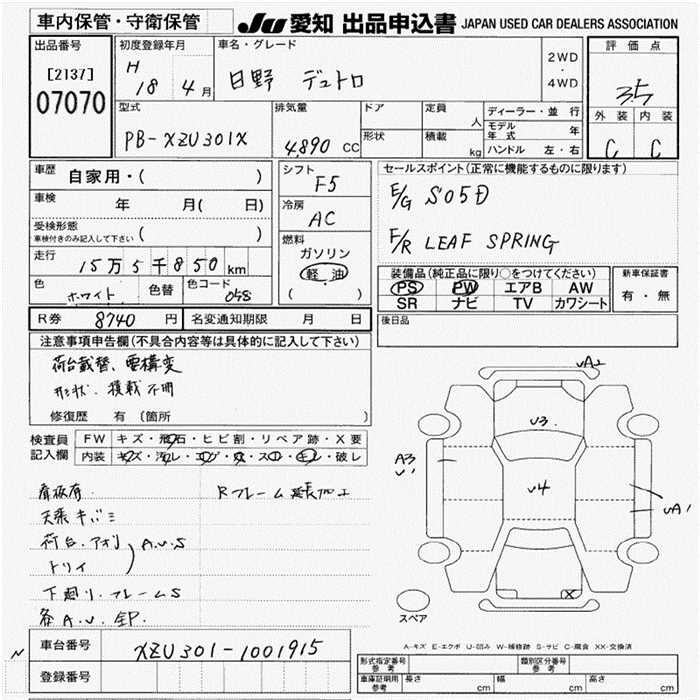 車内保管・守衛保管
JU 愛知 出品申込書 JAPAN USED CAR DEALERS ASSOCIATION
出品番号
[2137]
07070
初度登録年月
H 18 4月
車名・グレード
日野 デュトロ
2WD
・
4WD
評価点
3.5
外装 内装
C C
型式
PB-XZU301X
排気量
4,890 CC
ドア
形状
定員 人
積載 kg
ディーラー・並行
モデル年式 年
ハンドル 左・右
車歴 自家用・( )
車検 年 月( 日)
受検形態
車検付きのみ記入して下さい ( )
走行 15万5千850km
色 ホワイト 色替 色コード 058
シフト
F5
冷房
AC
燃料
ガソリン
軽・油
( )
セールスポイント(正常に機能するものに限ります)
E/G S05D
F/R LEAF SPRING
装備品(純正品に限り○をつけてください)
PS PW エアB AW
SR ナビ TV カワシート
新車保証書
有・無
R券 8740 円 名変通知期限 月 日
後日品
注意事項申告欄(不具合内容等は具体的に記入して下さい)
荷台載替、要構変
形状、積載不明
修復歴 有 (箇所 )
検査員
記入欄
FW キズ・飛石・ヒビ割・リペア跡・X要
内装 キズ・汚レ・コゲ・穴・スレ・キレ・破レ
Rフレーム延長加工
天張キバミ
荷台.アオリ
トリイ
A.U.S
下廻リ.フレームS
各A.U.
UA2
U3
A3
U1
U4
UA1
X
スペア
A-キズ E-エクボ U-凹み W-補修跡 S-サビ C-腐食 XX-交換済
N
車台番号 XZU301-1001915
登録番号
形式指定番号
参考
類別区分番号
参考
車庫証明用
参考
長さ cm 幅 cm 高さ cm